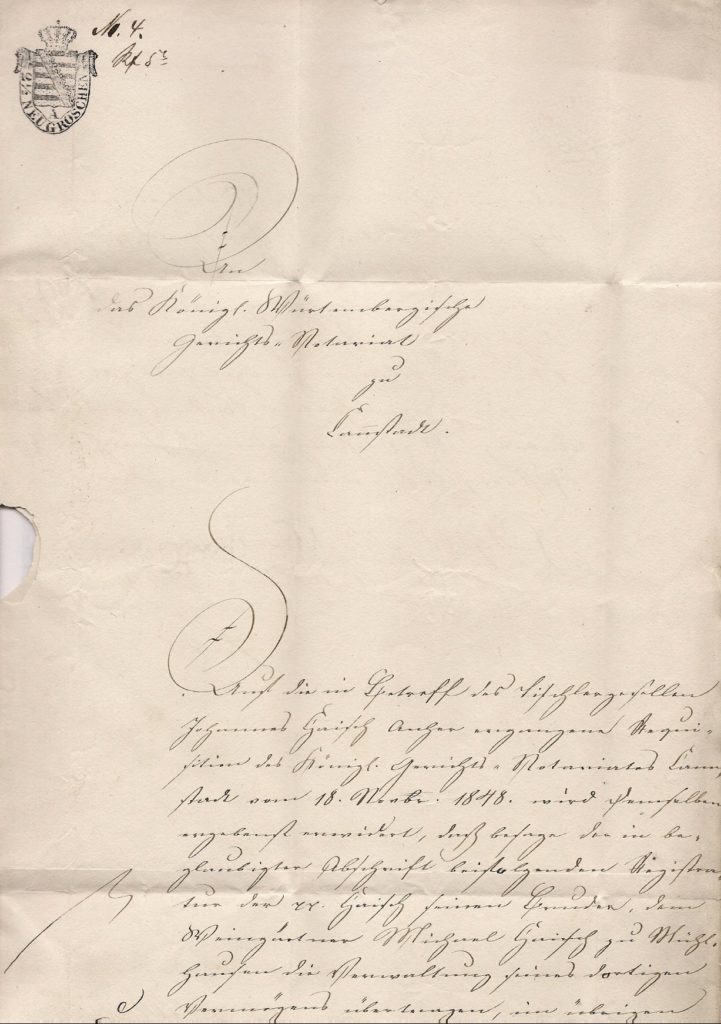 No. 4.
2½ NEUGROSCHEN
An
das Königl. Würtembergische
Gerichts-Notariat
zu
Cannstadt.
Auf die in Betreff des Tischlergesellen
Johannes Haisch anher ergangene Requi-
sition des Königl. Gerichts-Notariates Cann-
stadt vom 18. Novbr. 1848. wird demselben
ergebenst erwidert, daß besage der in be-
glaubigter Abschrift beifolgenden Registra-
tur der pp. Haisch seinen Bruder, dem
Weingärtner Michael Haisch zu Mühl-
hausen die Verwaltung seines dortigen
Vermögens übertragen, im übrigen